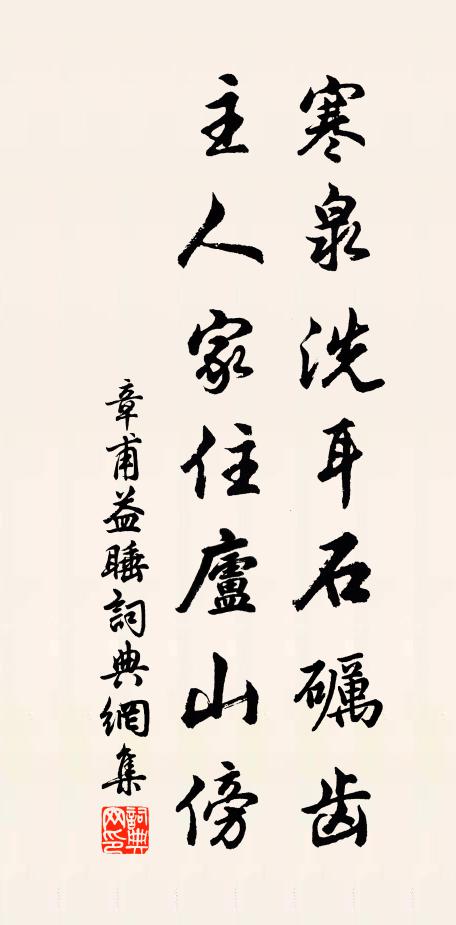 寒泉洗耳石礪齿
主人家住廬山傍
章甫益睡詞典網集
詞典網印